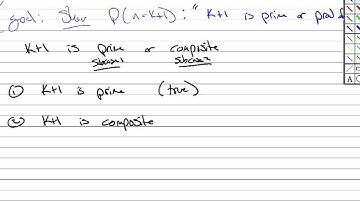 goal: Show P(n=k+1): "k+1 is prime or prod
k+1 is prime or composite
subcase1 subcase2
① k+1 is prime (true)
② k+1 is composite